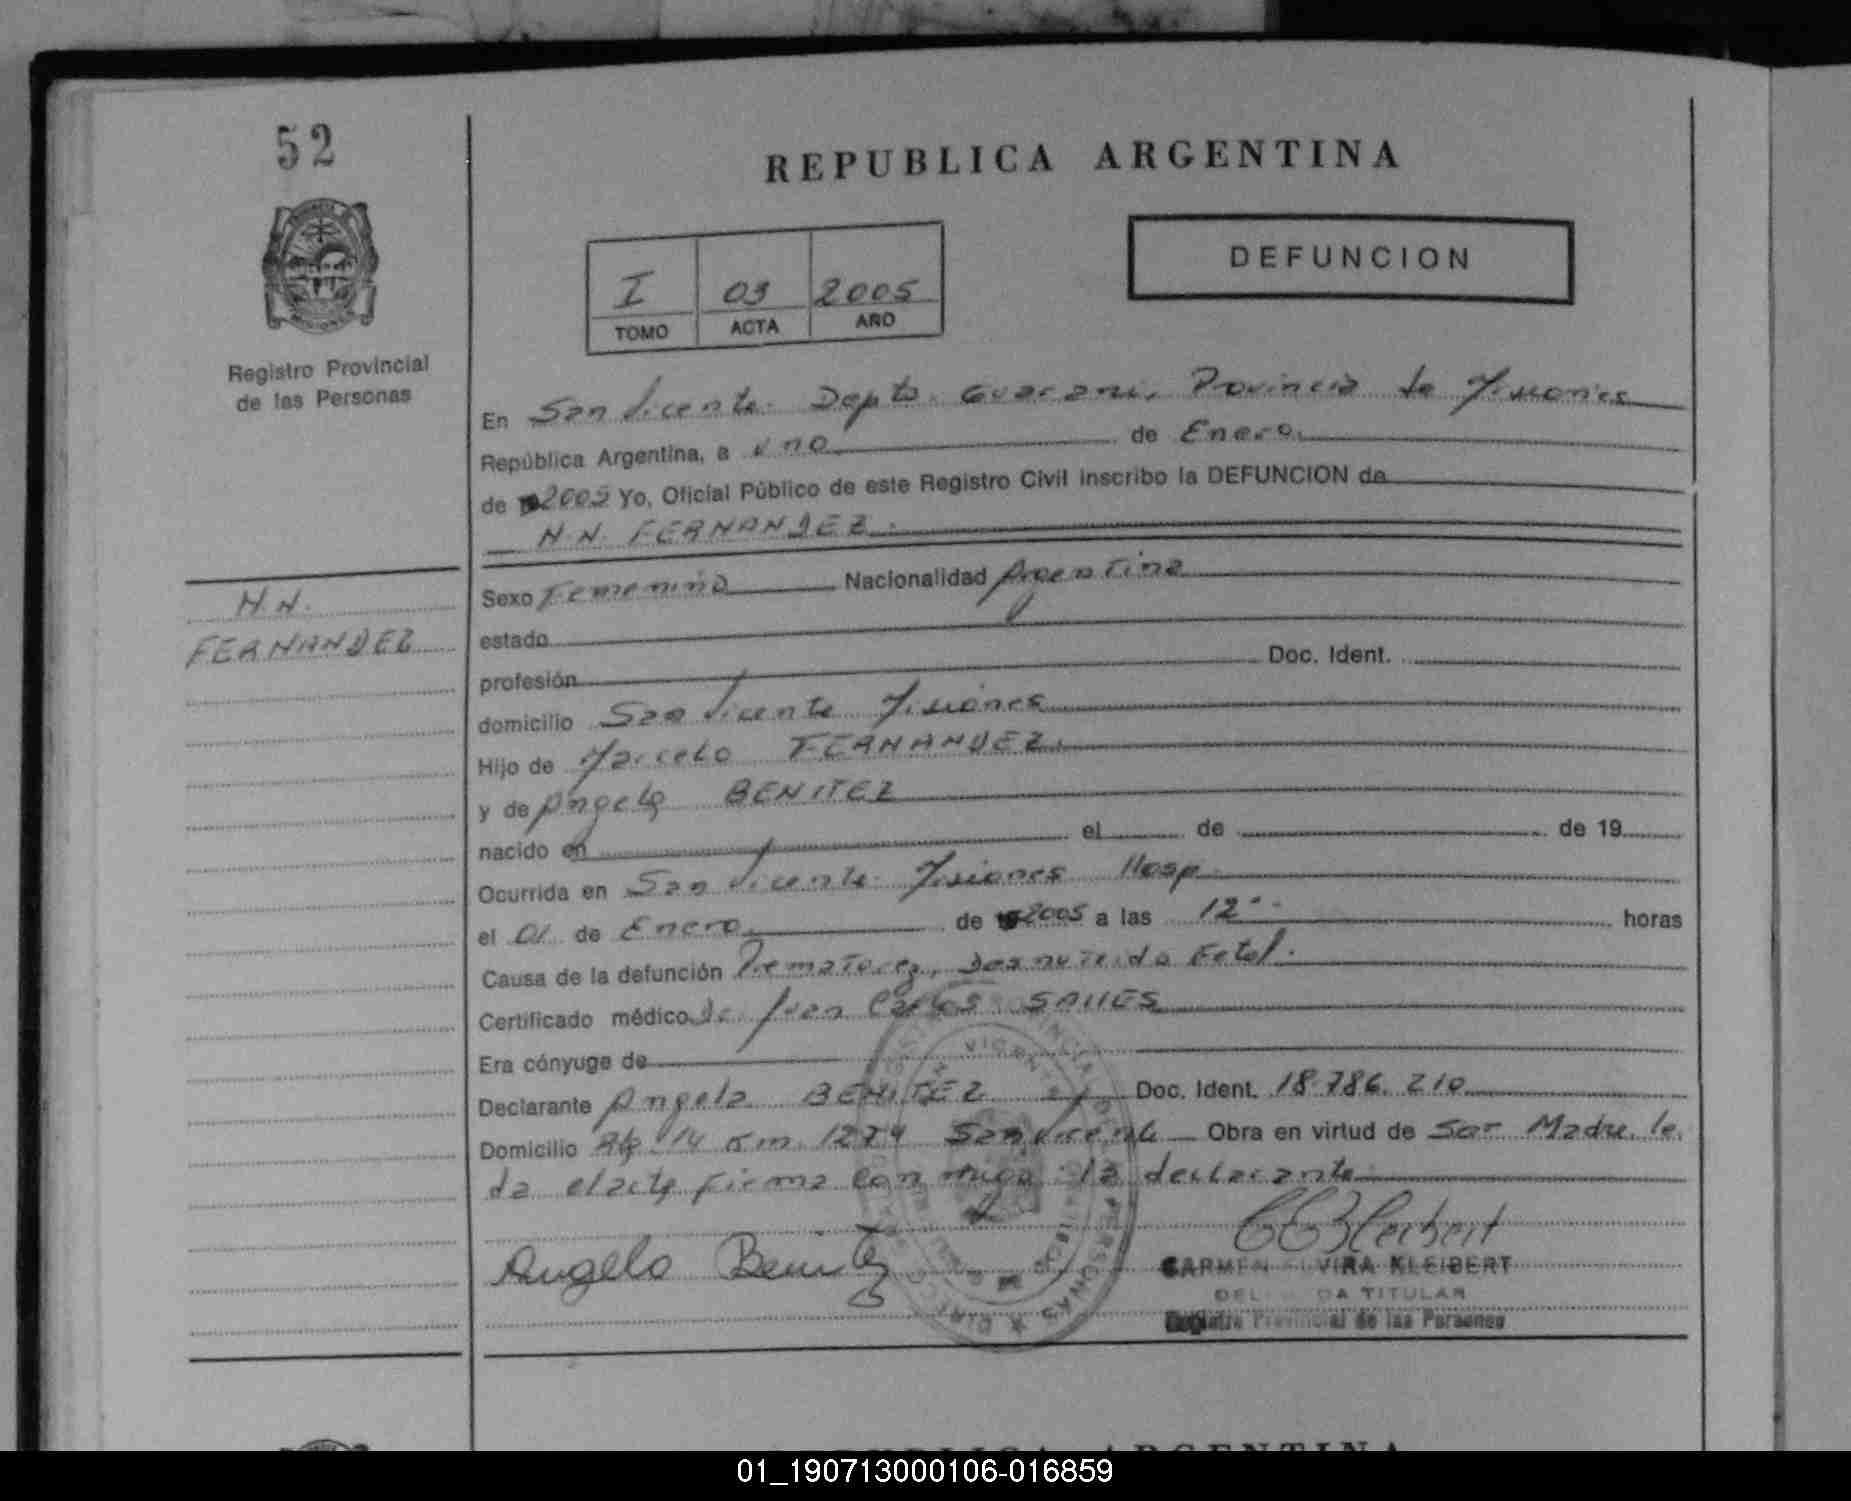 52
REPUBLICA ARGENTINA
DEFUNCION
I 03 2005
TOMO ACTA AÑO
Registro Provincial
de las Personas
En San Vicente. Depto. Guarani, Provincia de Misiones
República Argentina, a uno de Enero.
de 2005 Yo, Oficial Público de este Registro Civil inscribo la DEFUNCION de
N.N. FERNANDEZ.
N.N.
FERNANDEZ
Sexo Femenino Nacionalidad Argentina
estado
profesión Doc. Ident.
domicilio San Vicente Misiones
Hijo de Marcelo FERNANDEZ.
y de Angela BENITEZ
nacido en el de de 19
Ocurrida en San Vicente. Misiones Hosp.
el 01 de Enero de 2005 a las 12 horas
Causa de la defunción Prematurez, Desnutrido Fetal.
Certificado médico Dr. Juan Carlos
Era cónyuge de
Declarante Angela BENITEZ Doc. Ident. 18.786.210
Domicilio 14 Km. 1279 San Vicente Obra en virtud de Ser Madre. le
da el acta firma conmigo la declarante.
Angela Benitez
CARMEN ELVIRA KLEIBERT
DELEGADA TITULAR
Registro Provincial de las Personas
REPUBLICA ARGENTINA
01_190713000106-016859